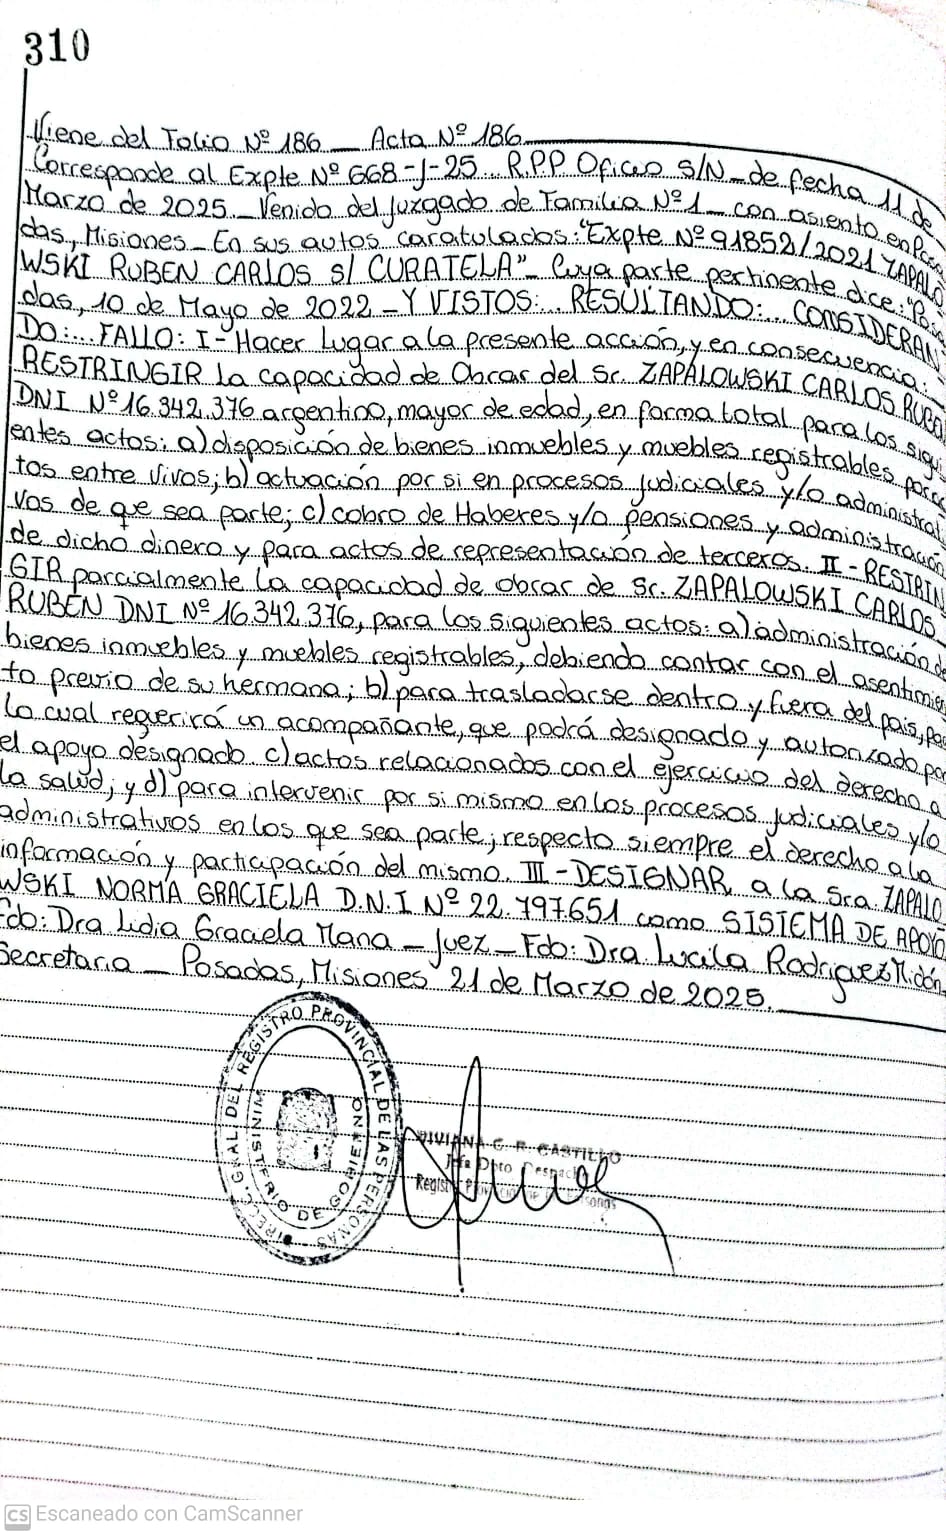 310
Viene del Folio Nº 186 _ Acta Nº 186
Corresponde al Expte Nº 668-J-25... R.P.P. Oficio S/N_de fecha 11 de
Marzo de 2025._ Venido del Juzgado de Familia Nº 1_ con asiento en Posa
das, Misiones_ En sus autos caratulados: "Expte Nº 91852/2021 ZAPALO
WSKI RUBEN CARLOS s/ CURATELA"_ Cuya parte pertinente dice: "Posa
das, 10 de Mayo de 2022 _ Y VISTOS:... RESULTANDO:... CONSIDERAN
DO:... FALLO: I- Hacer Lugar a la presente acción, y en consecuencia:
RESTRINGIR la capacidad de Obrar del Sr. ZAPALOWSKI CARLOS RUBEN
DNI Nº 16.342.376 argentino, mayor de edad, en forma total para los sigui
entes actos: a) disposición de bienes inmuebles y muebles registrables por ac
tos entre vivos; b) actuación por si en procesos judiciales y/o administrati
vos de que sea parte; c) cobro de Haberes y/o pensiones y administración
de dicho dinero y para actos de representación de terceros. II - RESTRIN
GIR parcialmente la capacidad de obrar de Sr. ZAPALOWSKI CARLOS
RUBEN DNI Nº 16.342.376, para los siguientes actos: a) administración de
bienes inmuebles y muebles registrables, debiendo contar con el asentimien
to previo de su hermana; b) para trasladarse dentro y fuera del país, para
lo cual requerirá un acompañante, que podrá designado y autorizado por
el apoyo designado c) actos relacionados con el ejercicio del derecho a
la salud; y d) para intervenir por si mismo en los procesos judiciales y/o
administrativos en los que sea parte; respecto siempre el derecho a la
información y participación del mismo. III - DESIGNAR a la Sra. ZAPALO
WSKI NORMA GRACIELA D.N.I Nº 22.797.651 como SISTEMA DE APOYO
Fdo: Dra Lidia Graciela Mana _ Juez _ Fdo: Dra Lucila Rodriguez Midón
Secretaria _ Posadas, Misiones 21 de Marzo de 2025.
DIRECC. GRAL. DEL REGISTRO PROVINCIAL DE LAS PERSONAS
MINISTERIO DE GOBIERNO
VIVIANA C. R. CASTILLO
Jefa Dpto Despacho
Registro Provincial de las Personas
CS Escaneado con CamScanner